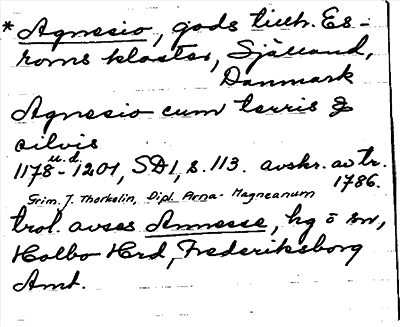 * Agnesio, gods tillh. Es-
roms kloster, Sjælland,
Danmark
Agnesio cum terris &
silvis
u.d.
1178-1201, SD1, s. 113. avskr. av tr.
1786.
Grim. J. Thorkelin, Dipl. Arna-Magneanum
trol. avses Annesse, hg o sn,
Holbo Hrd, Frederiksborg
Amt.